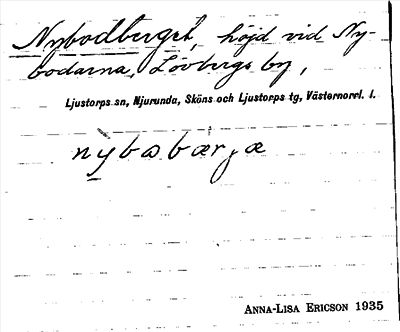 Nybodberget, höjd vid Ny-
bodarna, Lövbergs by,
Ljustorps sn, Njurunda, Sköns och Ljustorps tg, Västernorrl. l.
nybωbærjæ
ANNA-LISA ERICSON 1935